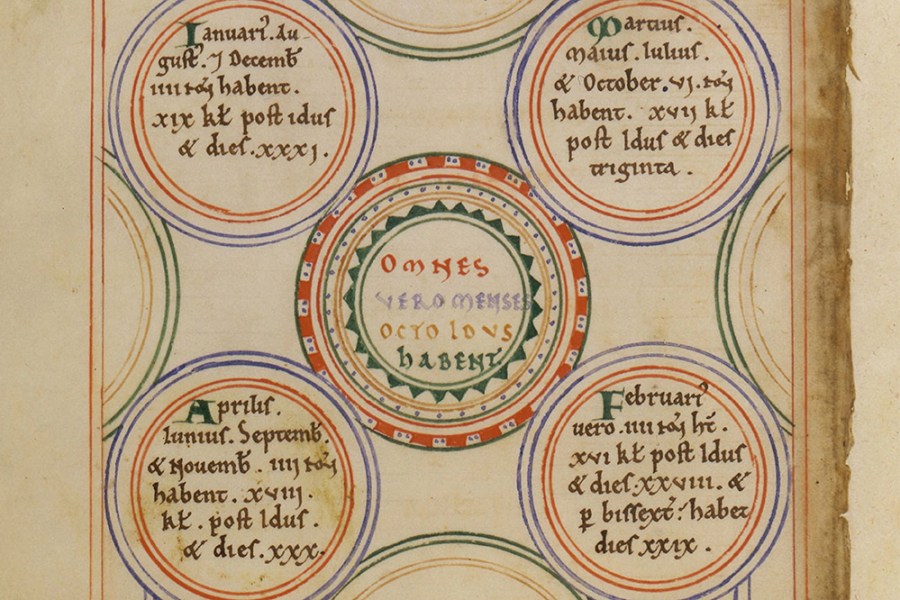 Ianuari᾽. Au-
gust᾽. ⁊ Decemb̄
iiii noꝫ habent.
xix kł post idus
& dies. xxxi.
Martius.
Maius. Iulius.
& October. vi. noꝫ
habent. xvii kł
post Idus & dies
triginta.
OMNES
VERO MENSES
OCTO IDVS
HABENT
Aprilis.
Iunius. Septemb̄.
& Novemb̄. iiii noꝫ
habent. xviii.
kł. post Idus.
& dies. xxx.
Februari᾽
vero. iiii noꝫ hr̄.
xvi kł post Idus
& dies. xxviii. &
ꝑ bissext᾽ habet
dies xxix.